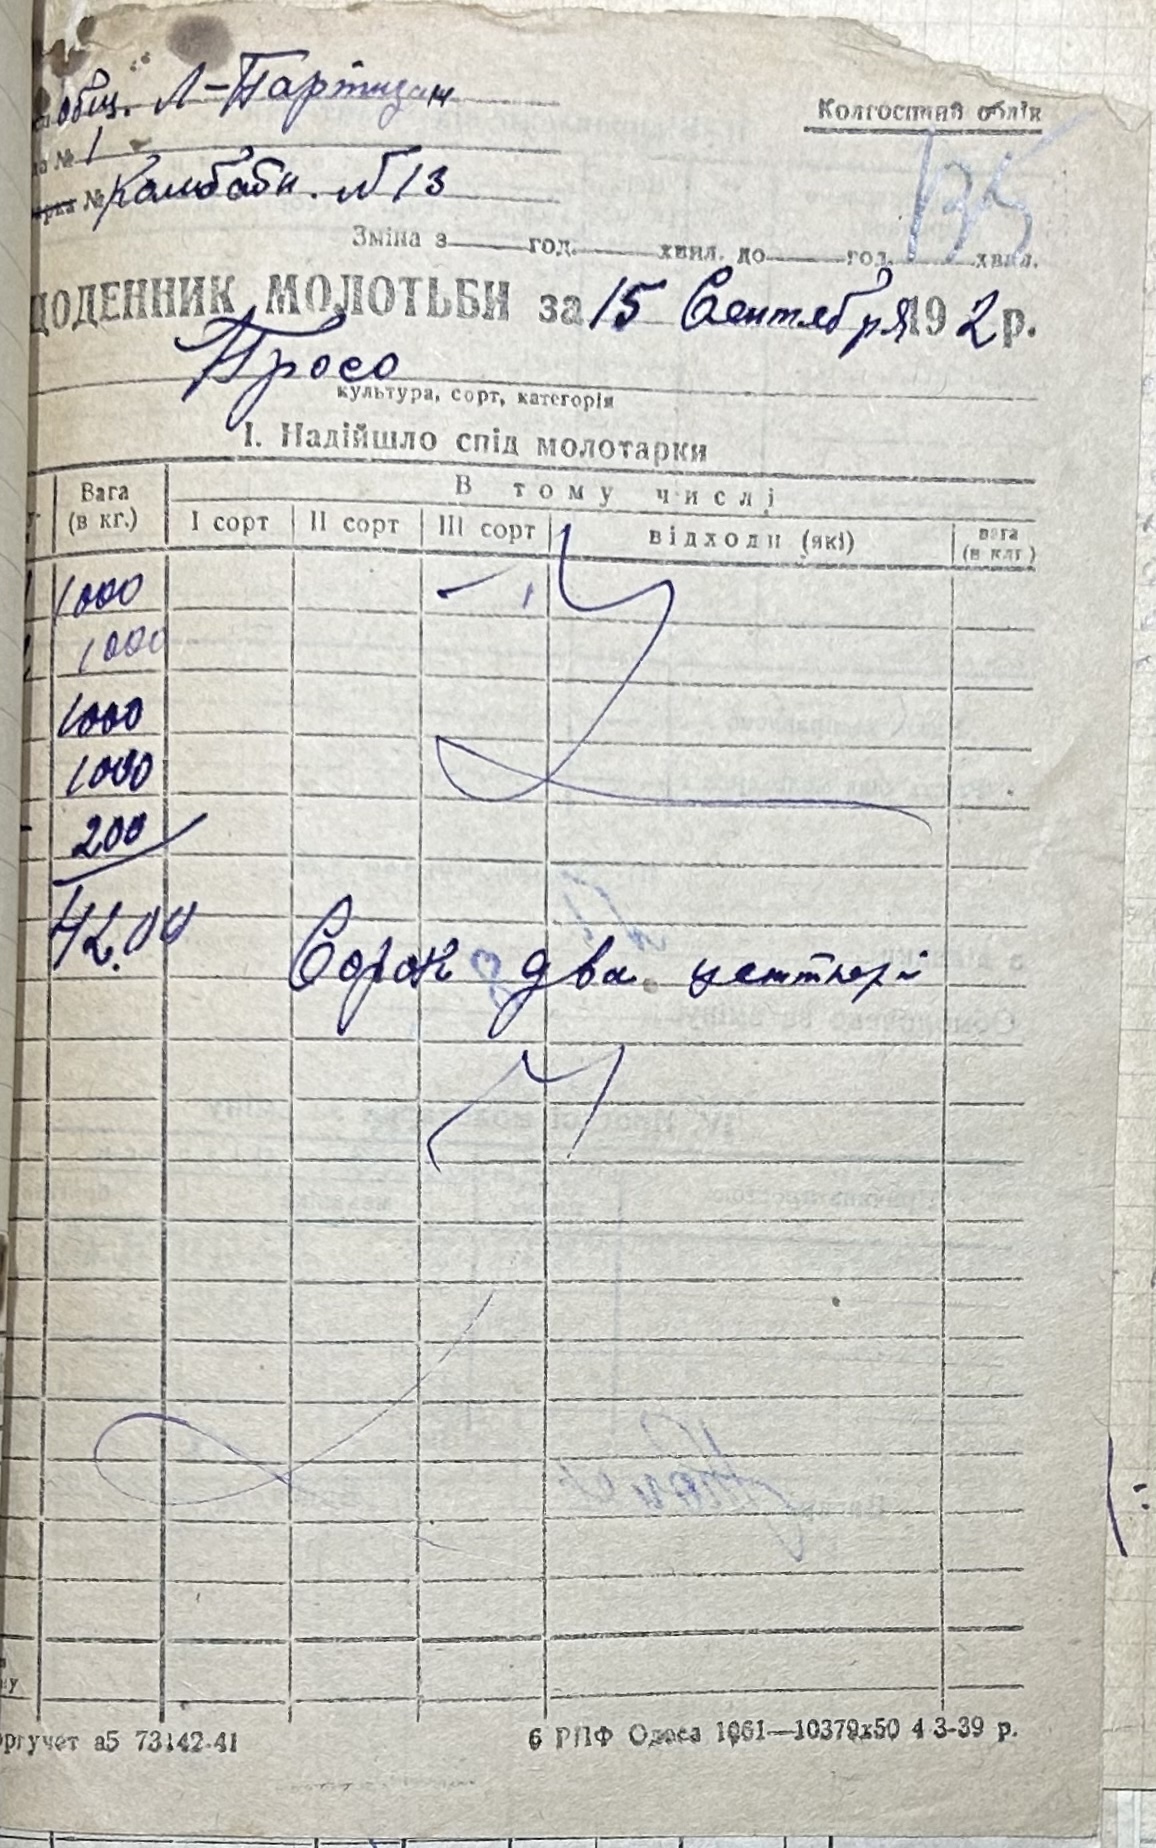 общ. Л-Партизан
Колгоспний облік
да № 1
135
арка № Комбайн. N 13
Зміна з год. хвил. до год. хвил.
ЩОДЕННИК МОЛОТЬБИ за 15 Сентября 192р.
Просо
культура, сорт, категорія
І. Надійшло спід молотарки
Вага (в кг.) В тому числі
І сорт ІІ сорт ІІІ сорт відходи (які) вага (в клг)
1000
1000
1000
1000
200
42.00 Сорок два центнері
Оргучет а5 73142-41 6 РПФ Одеса 1061—10379х50 4 3-39 р.